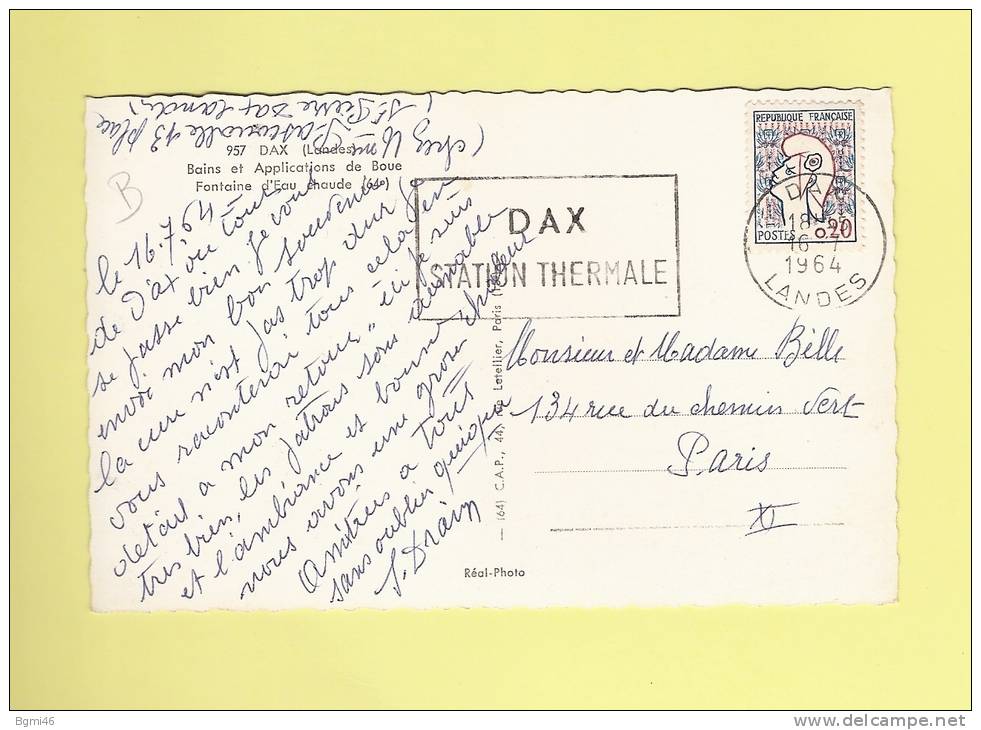 (chez Mme
13 place
St Pierre Dax Landes)
957 DAX (Landes)
Bains et Applications de Boue
Fontaine d'Eau chaude (64°)
B
le 16.7.64
de Dax où tout
se passe bien. Je vous
envoi mon bon souvenir
la cure n'est pas trop dur, j'en
vous raconterai tous cela en
detail a mon retour, je suis
tres bien, les patrons sont aimable
et l'ambiance et bonne chaleur
nous avons une grosse
Amitiées a tous
sans oublier
DAX
STATION THERMALE
REPUBLIQUE FRANÇAISE
POSTES
0,20
DAX
18
16-7
1964
LANDES
Monsieur et Madame Bélle
134 rue du chemin Vert
Paris
XI
— (64) C.A.P., 44, rue Letellier, Paris
Réal-Photo
Bgmi46
delcampe.net